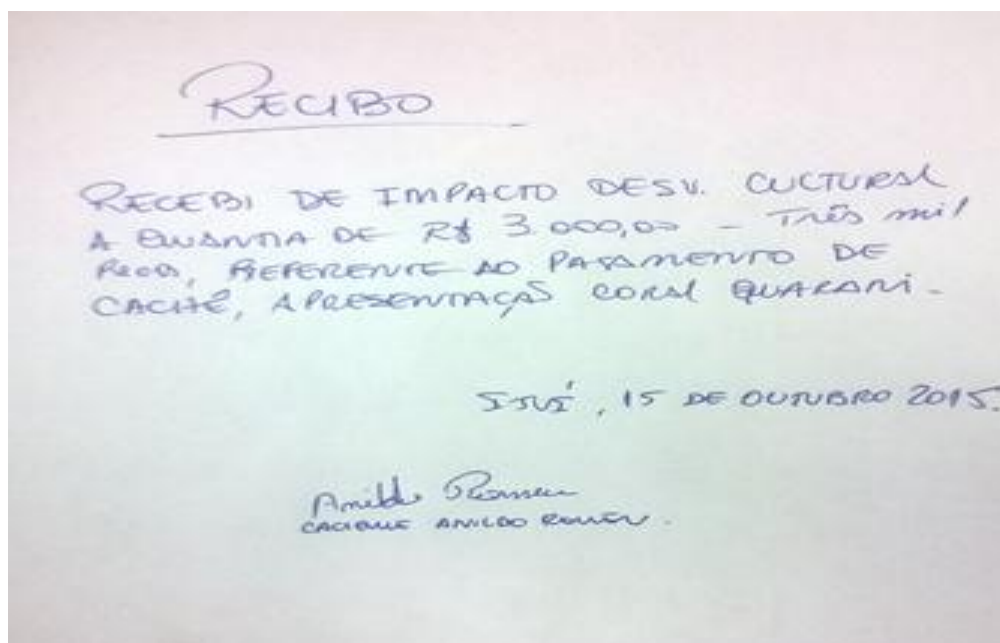 RECIBO
RECEBI DE IMPACTO DESV. CULTURAL
A QUANTIA DE R$ 3.000,00 - Três mil
Reais, REFERENTE AO PAGAMENTO DE
CACHÊ, APRESENTAÇÃO CORAL GUARANI.
IJUÍ, 15 DE OUTUBRO 2015.
Anildo Romeu
CACIQUE ANILDO ROMEU.